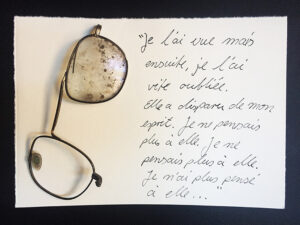 "Je l'ai vue mais
ensuite, je l'ai
vite oubliée.
Elle a disparu de mon
esprit. Je ne pensais
plus à elle. Je ne
pensais plus à elle.
Je n'ai plus pensé
à elle..."